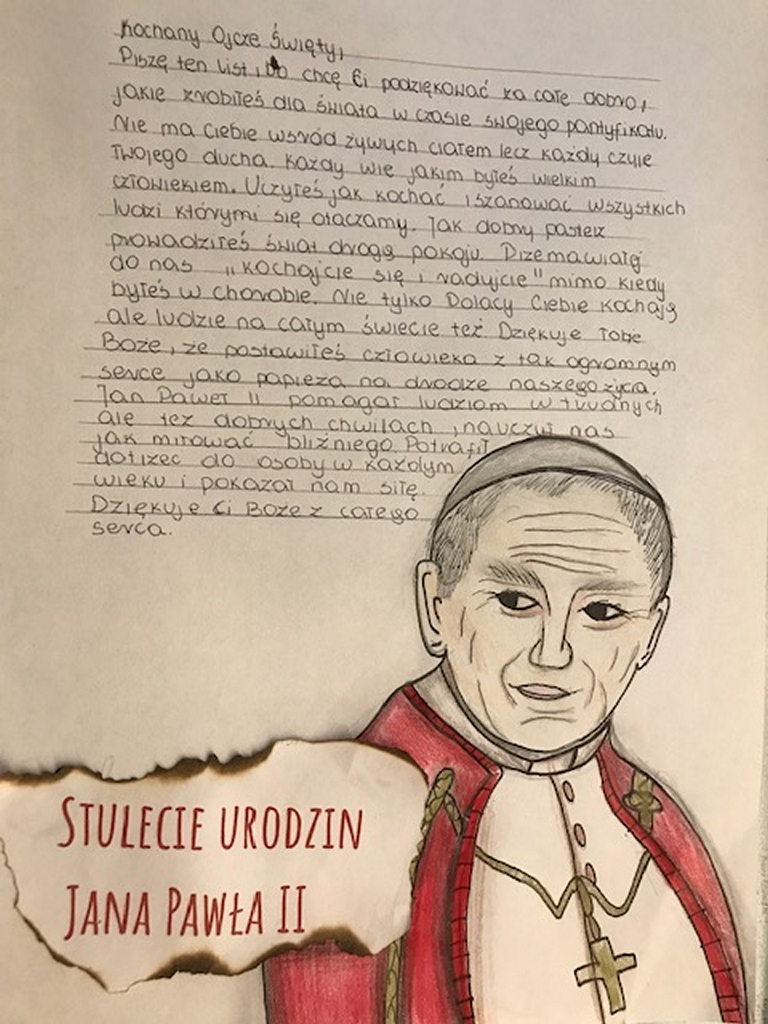 Kochany Ojcze Święty,
Piszę ten list, bo chcę Ci podziękować za całe dobro,
jakie zrobiłeś dla świata w czasie swojego pontyfikatu.
Nie ma Ciebie wsród żywych ciałem lecz każdy czuje
Twojego ducha. Każdy wie jakim byłeś wielkim
człowiekiem. Uczyłeś jak kochać i szanować wszystkich
ludzi którymi się otaczamy. Jak dobry pasterz
prowadziłeś świat drogą pokoju. Przemawiałeś
do nas "Kochajcie się i radujcie" mimo kiedy
byłeś w chorobie. Nie tylko Polacy Ciebie kochają
ale ludzie na całym świecie też. Dziękuje Tobie
Boże, że postawiłeś człowieka z tak ogromnym
serce jako papieża na drodze naszego życia.
Jan Paweł II pomagał ludziom w trudnych
ale też dobrych chwilach, nauczył nas
jak miłować bliźniego. Potrafił
dotrzeć do osoby w każdym
wieku i pokazał nam siłę.
Dziękuje Ci Boże z całego
serca.
Stulecie urodzin
Jana Pawła II